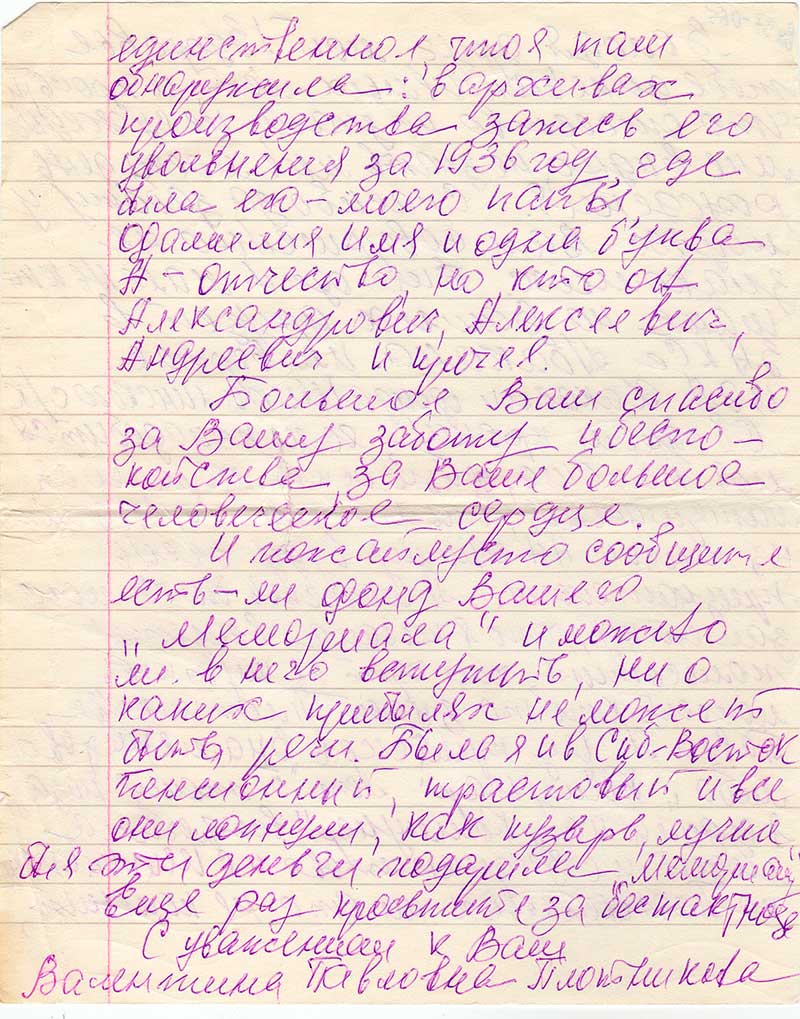 единственное, что я там
обнаружила: в архивах
производства запись его
увольнения за 1936 год, где
была его – моего папы
фамилия имя и одна буква
А – отчество, но кто он
Александрович, Алексеевич,
Андреевич и прочее.
Большое Вам спасибо
за Вашу заботу и беспо-
койства за Ваше большое
человеческое сердце.
И пожайлусто сообщите
есть-ли фонд Вашего
„Мемориала" и можно
ли в него вступить, ни о
каких прибылях не может
быть речи. Была я и в Сиб-Восток
пенсионный, трастовый и все
они лопнули, как пузырь, лучше
бы я эти деньги подарила „Мемориалу"
Еще раз простите за бестактность
С уважением к Вам
Валентина Павловна Плотникова